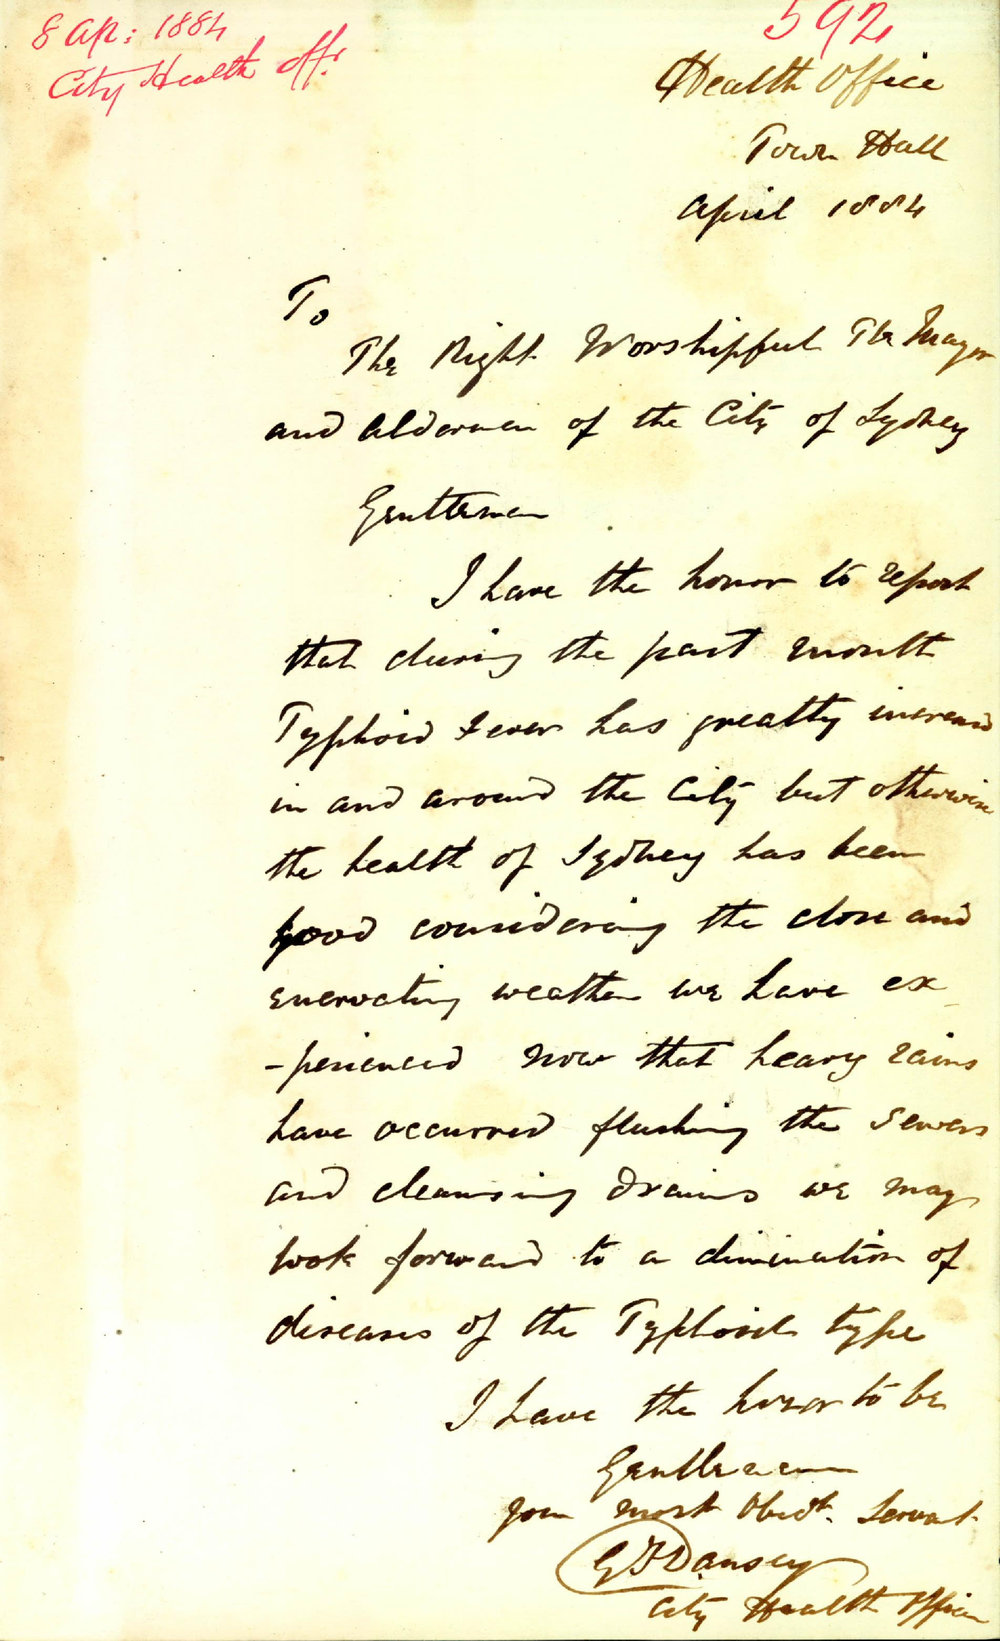 8 Ap: 1884
City Health Off:
592
Health Office
Town Hall
April 1884
To
The Right Worshipful The Mayor
and Aldermen of the City of Sydney
Gentlemen
I have the honor to report
that during the past month
Typhoid Fever has greatly increased
in and around the City but otherwise
the health of Sydney has been
good considering the close and
enervating weather we have ex
-perienced now that heavy rains
have occurred flushing the sewers
and cleansing drains we may
look forward to a diminution of
diseases of the Typhoid type
I have the honor to be
Gentlemen
your most Obedt. Servant
G F Dansey
City Health Officer